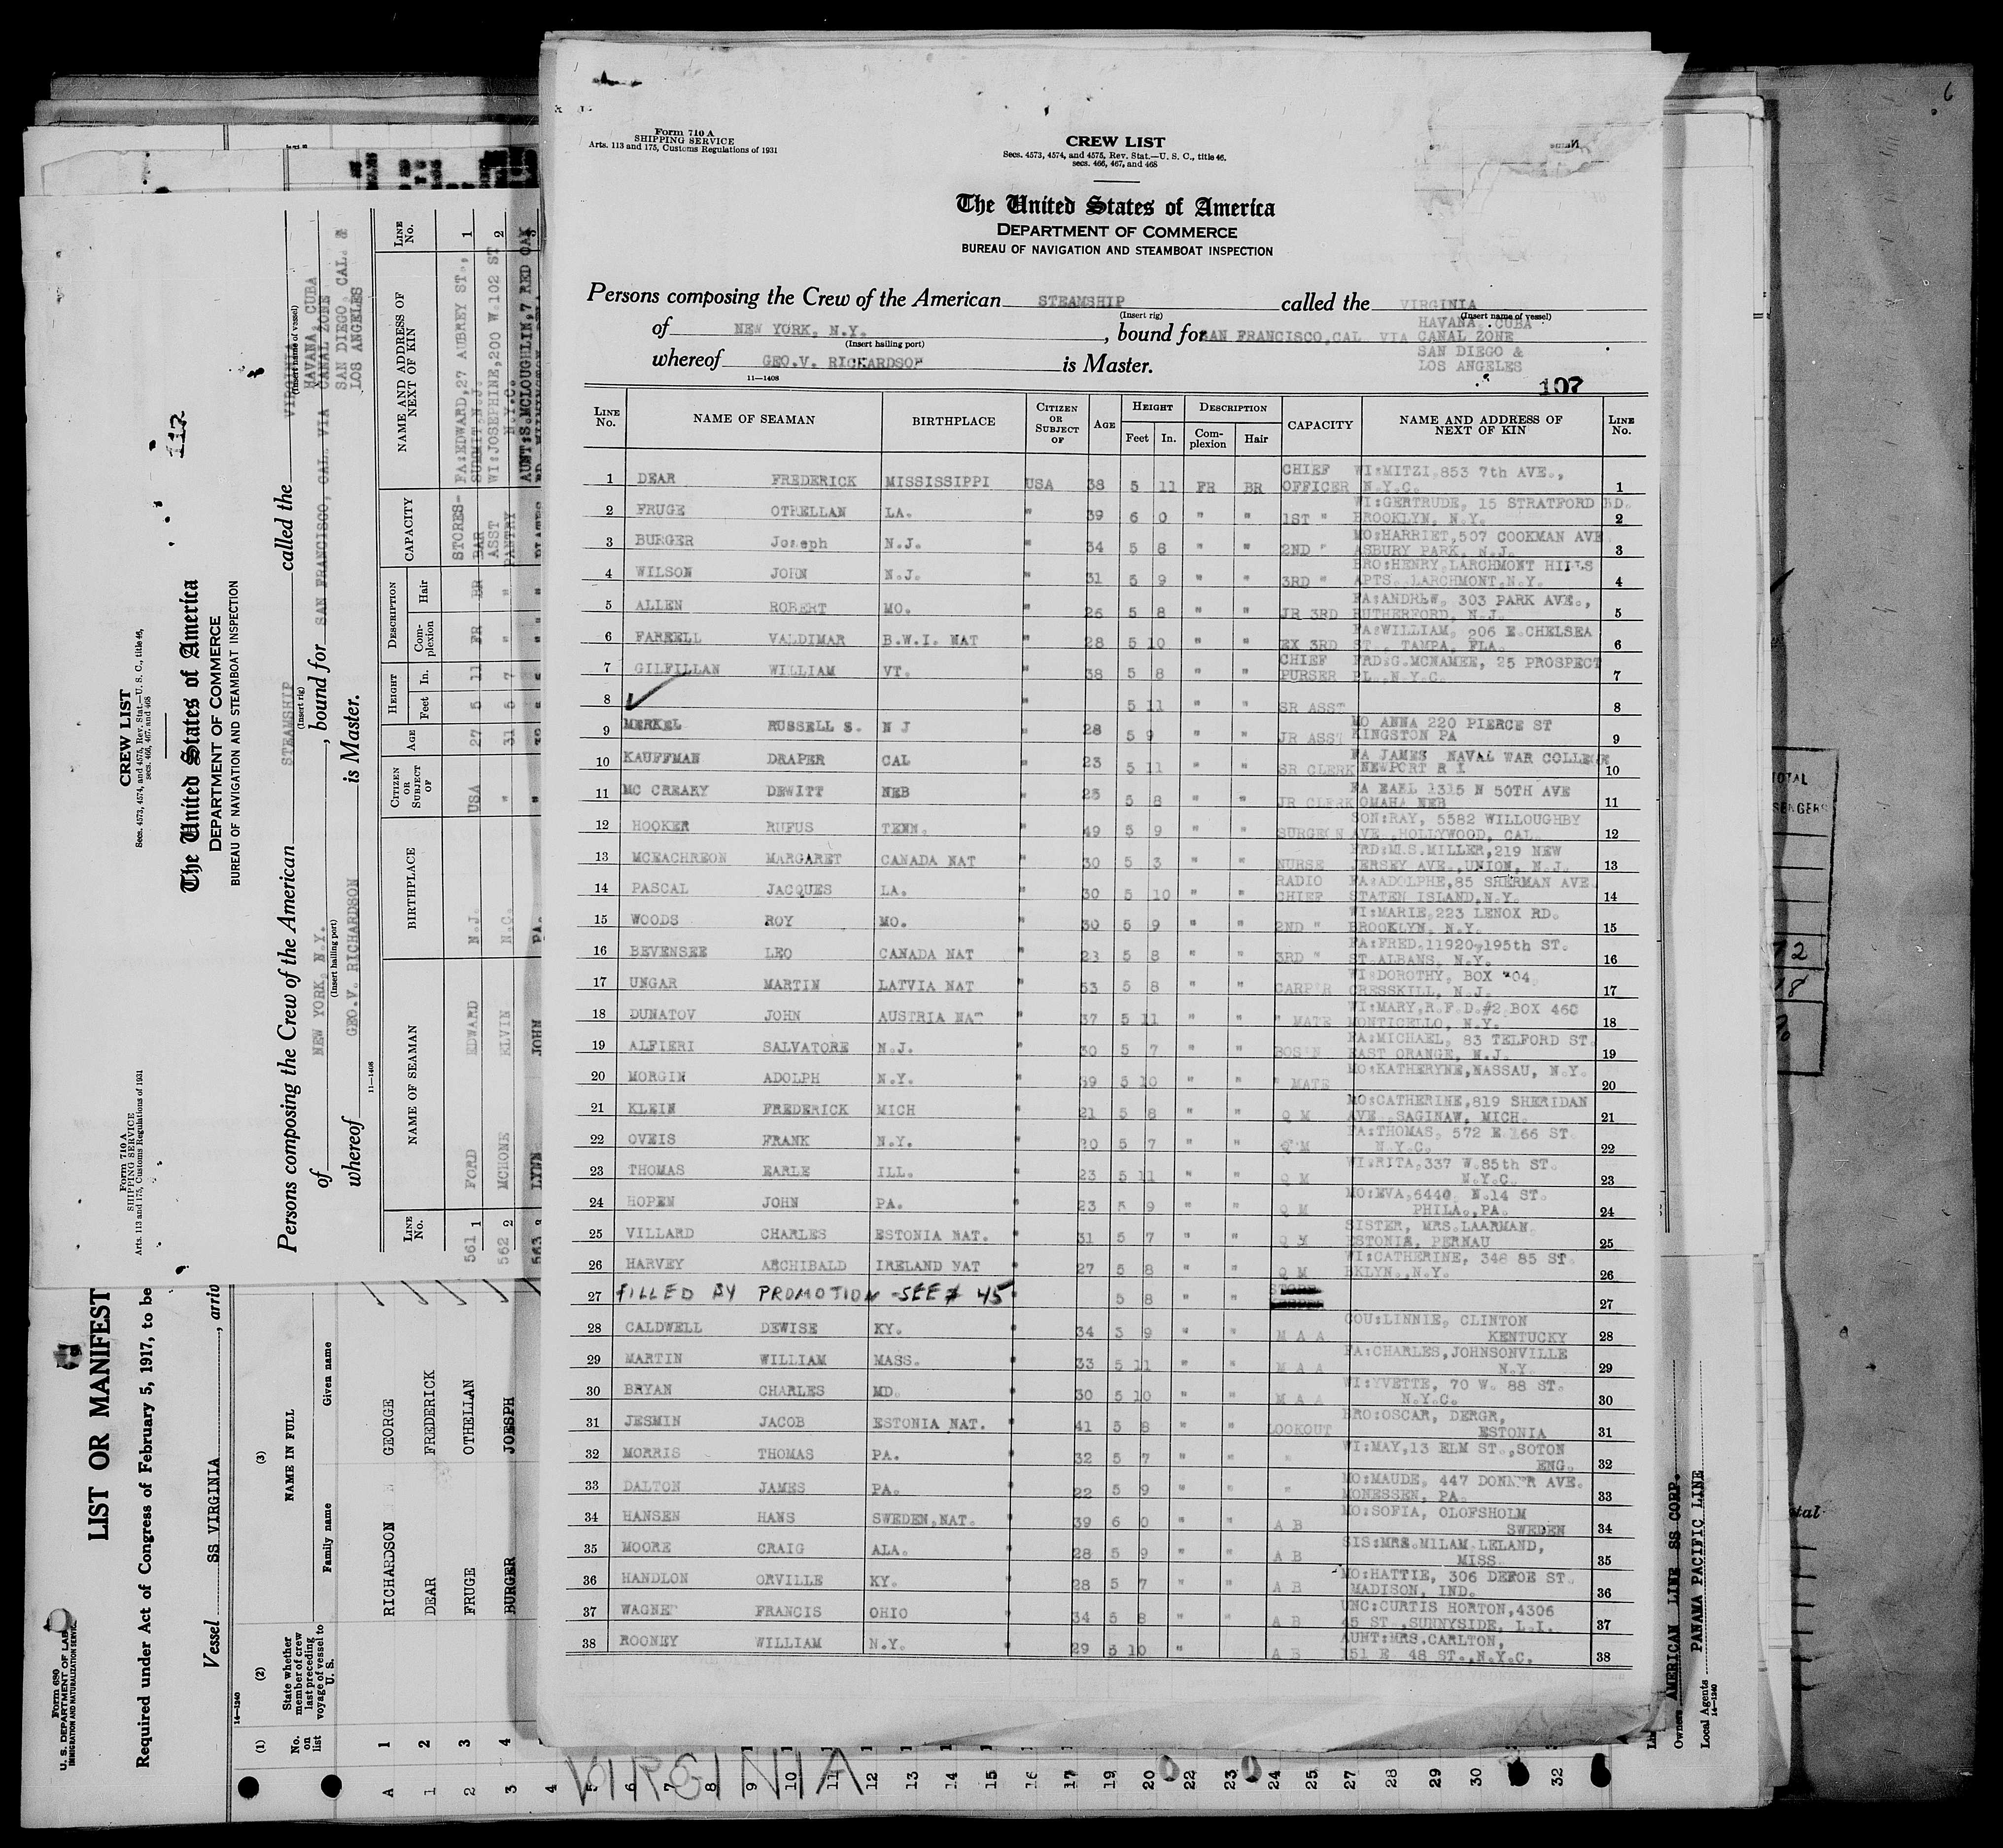 Form 710 A
SHIPPING SERVICE
Arts. 113 and 175, Customs Regulations of 1931
CREW LIST
Secs. 4573, 4574, and 4575, Rev. Stat.—U. S. C., title 46,
secs. 466, 467, and 468
The United States of America
DEPARTMENT OF COMMERCE
BUREAU OF NAVIGATION AND STEAMBOAT INSPECTION
Persons composing the Crew of the American STEAMSHIP called the VIRGINIA
(Insert rig) (Insert name of vessel)
of NEW YORK, N.Y., bound for SAN FRANCISCO, CAL VIA HAVANA, CUBA
(Insert hailing port) CANAL ZONE
SAN DIEGO &
whereof GEO.V. RICHARDSON is Master. LOS ANGELES
11—1408 107
LINE No. NAME OF SEAMAN BIRTHPLACE CITIZEN OR SUBJECT OF AGE HEIGHT Feet In. DESCRIPTION Complexion Hair CAPACITY NAME AND ADDRESS OF NEXT OF KIN LINE No.
1 DEAR FREDERICK MISSISSIPPI USA 38 5 11 FR BR CHIEF OFFICER WI:MITZI,853 7th AVE., N.Y.C. 1
2 FRUGE OTHELLAN LA. " 39 6 0 " " 1ST " WI:GERTRUDE, 15 STRATFORD RD. BROOKLYN, N.Y. 2
3 BURGER Joseph N.J. " 34 5 8 " " 2ND " MO:HARRIET,507 COOKMAN AVE ASBURY PARK, N.J. 3
4 WILSON JOHN N.J. " 31 5 9 " " 3RD " BRO:HENRY,LARCHMONT HILLS APTS.,LARCHMONT,N.Y. 4
5 ALLEN ROBERT MO. " 26 5 8 " " JR 3RD FA:ANDREW, 303 PARK AVE., RUTHERFORD, N.J. 5
6 FARRELL VALDIMAR B.W.I. NAT " 28 5 10 " " EX 3RD FA:WILLIAM, 206 E.CHELSEA ST., TAMPA, FLA. 6
7 GILFILLAN WILLIAM VT. " 38 5 8 " " CHIEF PURSER FRD:G.MCNAMEE, 25 PROSPECT PL.,N.Y.C. 7
8 5 11 " " SR ASST 8
9 MERKEL RUSSELL S. N J 28 5 9 " " JR ASST MO ANNA 220 PIERCE ST KINGSTON PA 9
10 KAUFFMAN DRAPER CAL " 23 5 11 " " SR CLERK FA JAMES NAVAL WAR COLLEGE NEWPORT R I 10
11 MC CREARY DEWITT NEB " 25 5 8 " " JR CLERK FA EARL 1315 N 50TH AVE OMAHA NEB 11
12 HOOKER RUFUS TENN. " 49 5 9 " " SURGEON SON:RAY, 5582 WILLOUGHBY AVE.,HOLLYWOOD, CAL. 12
13 MCEACHREON MARGARET CANADA NAT " 30 5 3 " " NURSE FRD:M.S.MILLER,219 NEW JERSEY AVE.,UNION, N.J. 13
14 PASCAL JACQUES LA. " 30 5 10 " " RADIO CHIEF FA:ADOLPHE,85 SHERMAN AVE. STATEN ISLAND,N.Y. 14
15 WOODS ROY MO. " 30 5 9 " " 2ND " WI:MARIE,223 LENOX RD. BROOKLYN, N.Y. 15
16 BEVENSEE LEO CANADA NAT " 23 5 8 " " 3RD " FA:FRED,11920-195th ST. ST.ALBANS, N.Y. 16
17 UNGAR MARTIN LATVIA NAT " 53 5 8 " " CARP'R WI:DOROTHY, BOX 04, CRESSKILL, N.J. 17
18 DUNATOV JOHN AUSTRIA NAT " 37 5 11 " " " MATE WI:MARY,R.F.D.#2 BOX 460 MONTICELLO, N.Y. 18
19 ALFIERI SALVATORE N.J. " 30 5 7 " " BOS'N FA:MICHAEL, 83 TELFORD ST. EAST ORANGE, N.J. 19
20 MORGIN ADOLPH N.Y. " 39 5 10 " " " MATE MO:KATHERYNE,NASSAU, N.Y. 20
21 KLEIN FREDERICK MICH " 21 5 8 " " Q M MO:CATHERINE,819 SHERIDAN AVE.,SAGINAW, MICH. 21
22 OVEIS FRANK N.Y. " 20 5 7 " " Q M FA:THOMAS, 572 E.166 ST. N.Y.C. 22
23 THOMAS EARLE ILL. " 23 5 11 " " Q M WI:RITA,337 W.85th ST. N.Y.C. 23
24 HOPEN JOHN PA. " 23 5 9 " " Q M MO:EVA,6440 N.14 ST. PHILA.,PA. 24
25 VILLARD CHARLES ESTONIA NAT. " 31 5 7 " " Q M SISTER, MRS.LAARMAN. ESTONIA, PERNAU 25
26 HARVEY ARCHIBALD IRELAND NAT " 27 5 8 " " Q M WI:CATHERINE, 348 85 ST. BKLYN.,N.Y. 26
27 FILLED BY PROMOTION -SEE # 45 " 5 8 " " 27
28 CALDWELL DEWISE KY. " 34 5 9 " " M A A COU:LINNIE, CLINTON KENTUCKY 28
29 MARTIN WILLIAM MASS. " 33 5 11 " " M A A FA:CHARLES,JOHNSONVILLE N.Y. 29
30 BRYAN CHARLES MD. " 30 5 10 " " M A A WI:YVETTE, 70 W. 88 ST. N.Y.C. 30
31 JESMIN JACOB ESTONIA NAT. " 41 5 8 " " LOOKOUT BRO:OSCAR, DERGR, ESTONIA 31
32 MORRIS THOMAS PA. " 32 5 7 " " " WI:MAY,13 ELM ST.,SOTON ENG. 32
33 DALTON JAMES PA. " 22 5 9 " " " MO:MAUDE, 447 DONNER AVE. MONESSEN, PA. 33
34 HANSEN HANS SWEDEN,NAT. " 39 6 0 " " A B MO:SOFIA, OLOFSHOLM SWEDEN 34
35 MOORE CRAIG ALA. " 28 5 9 " " A B SIS:MRS.MILAM,LELAND, MISS. 35
36 HANDLON ORVILLE KY. " 28 5 7 " " A B MO:HATTIE, 306 DEFOE ST. MADISON, IND. 36
37 WAGNER FRANCIS OHIO " 34 5 8 " " A B UNC:CURTIS HORTON,4306 45 ST.,SUNNYSIDE, L.I. 37
38 ROONEY WILLIAM N.Y. " 29 5 10 " A B AUNT:MRS.CARLTON, 151 E. 48 ST.,N.Y.C. 38
Form 710 A
SHIPPING SERVICE
Arts. 113 and 175, Customs Regulations of 1931
CREW LIST
Secs. 4573, 4574, and 4575, Rev. Stat.—U. S. C., title 46,
secs. 466, 467, and 468
The United States of America
DEPARTMENT OF COMMERCE
BUREAU OF NAVIGATION AND STEAMBOAT INSPECTION
112
Persons composing the Crew of the American STEAMSHIP called the VIRGINIA
(Insert rig) (Insert name of vessel)
of NEW YORK, N.Y., bound for SAN FRANCISCO, CAL. VIA HAVANA, CUBA
(Insert hailing port) CANAL ZONE
SAN DIEGO, CAL. &
whereof GEO.V. RICHARDSON is Master. LOS ANGELES
11—1408
LINE No. NAME OF SEAMAN BIRTHPLACE CITIZEN OR SUBJECT OF AGE HEIGHT Feet In. DESCRIPTION Complexion Hair CAPACITY NAME AND ADDRESS OF NEXT OF KIN LINE No.
561 1 FORD EDWARD N.J. USA 27 5 11 FR BR STORES-BAR FA:EDWARD,27 AUBREY ST., SUMMIT,N.J. 1
562 2 MCHONE ELVIN N.C. " 31 5 7 " " ASST PANTRY WI:JOSEPHINE,200 W.102 ST N.Y.C. 2
563 3 LYNN JOHN PA. " AUNT:S.MCLOUGHLIN,7 RED OAK
Form 680
U. S. DEPARTMENT OF LABOR
IMMIGRATION AND NATURALIZATION SERVICE
LIST OR MANIFEST
Required under Act of Congress of February 5, 1917, to be
Vessel SS VIRGINIA, arriv
14—1240
(1) (2) (3)
No. on list
State whether member of crew last preceding voyage of vessel to U. S.
NAME IN FULL
Family name Given name
A 1 RICHARDSON GEORGE
1 2 DEAR FREDERICK
2 3 FRUGE OTHELLAN
3 4 BURGER JOESPH
4 5 6 7 8 9 10 11 12 13 14 15 16 17 19 20 22 23 24 27 28 29 30 32
VIRGINIA
Owners AMERICAN LINE SS CORP.
Local Agents PANAMA PACIFIC LINE
14—1240
TOTAL
6